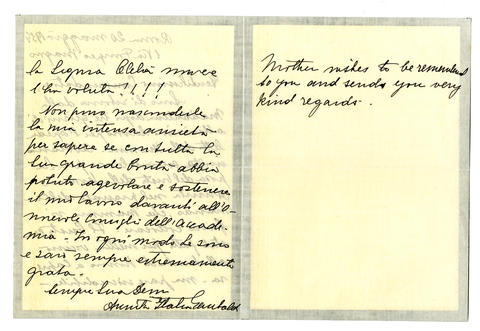 la Signora Clelia invece
l'ha voluta!!!!
Non puo nascondere
la mia intensa ansietà
per sapere se con tutta la
Sua grande Bontà abbia
potuto agevolare e sostenere
il mio lavoro davanti all'O-
norevole Consiglio dell'Accade-
mia - In ogni modo Le sono
e sarò sempre estremamente
grata.
Sempre Sua Dem
Italia Garibaldi
Mother wishes to be remembered
to you and sends you very
kind regards.